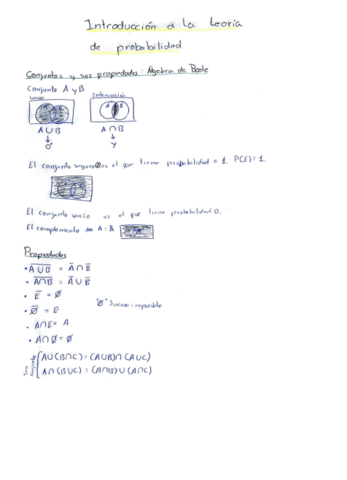 Introducción a la teoría
de probabilidad
Conjuntos y sus propiedades: Álgebra de Boole
Conjunto A y B
Unión Intersección
A B A B
A∪B A∩B
↓ ↓
o y
El conjunto es el que tiene probabilidad = 1. P(E)=1.
El conjunto vacío es el que tiene probabilidad 0.
El complemento de A: Ā
Propiedades
• \overline{A∪B} = Ā∩B̄
• \overline{A∩B} = Ā∪B̄
• Ē = Ø
• \overline{Ø} = E
"Ø" Suceso imposible
• A∩E = A
• A∩Ø = Ø
A∪(B∩C) = (A∪B)∩(A∪C)
A∩(B∪C) = (A∩B)∪(A∩C)